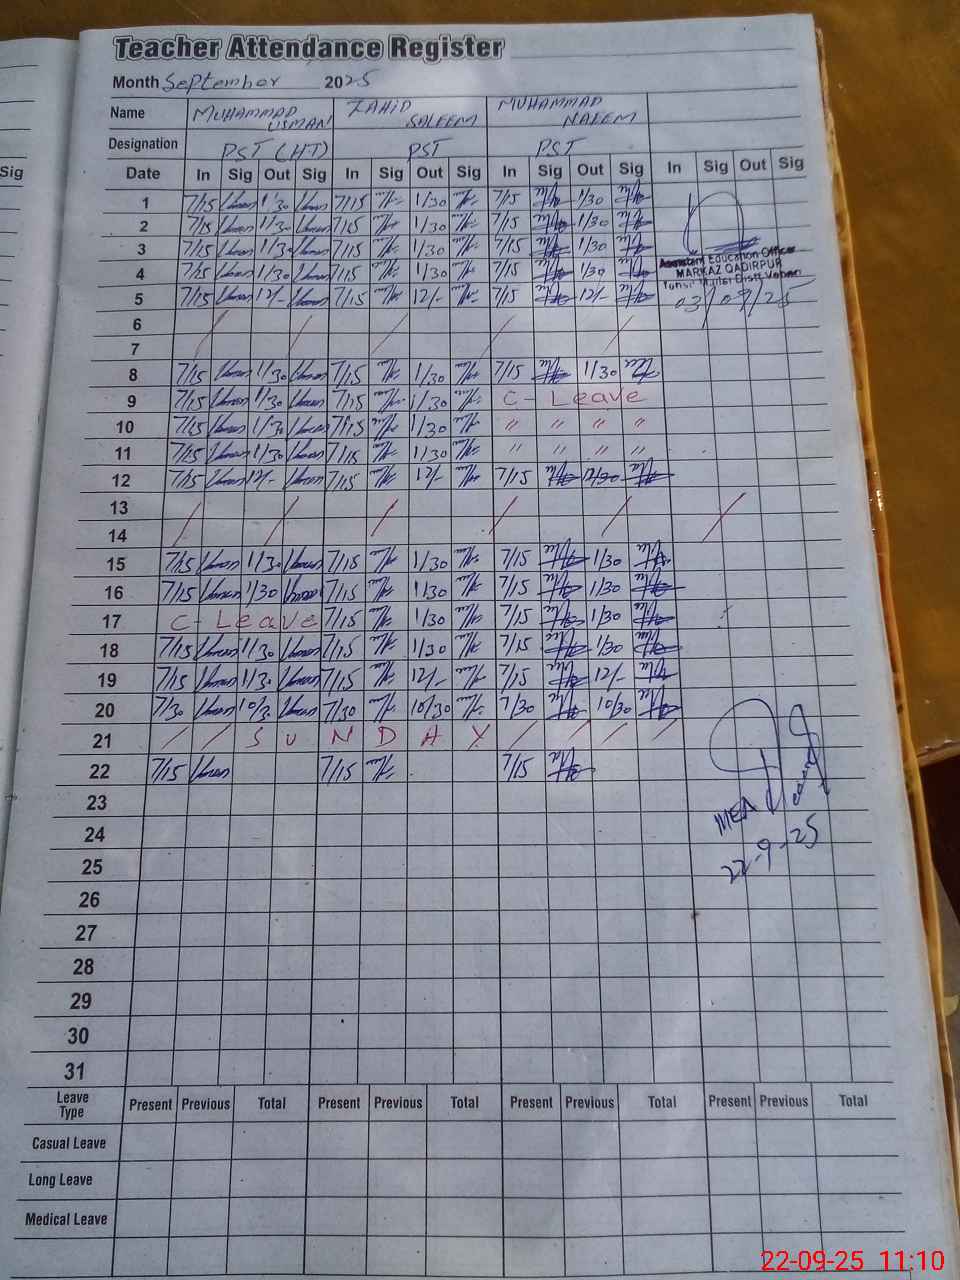 Teacher Attendance Register
Month September 2025
Name MUHAMMAD USMAN ZAHID SALEEM MUHAMMAD NAEEM
Designation PST (HT) PST PST
Date In Sig Out Sig In Sig Out Sig In Sig Out Sig In Sig Out Sig
Sig
1 7/15 1/30 7/15 1/30 7/15 1/30
2 7/15 1/30 7/15 1/30 7/15 1/30
3 7/15 1/30 7/15 1/30 7/15 1/30
4 7/15 1/30 7/15 1/30 7/15 1/30
5 7/15 12/- 7/15 12/- 7/15 12/-
Assistant Education Officer
MARKAZ QADIRPUR
03/09/25
6 / / / / /
7
8 7/15 1/30 7/15 1/30 7/15 1/30
9 7/15 1/30 7/15 1/30 C - Leave
10 7/15 1/30 7/15 1/30 " " " "
11 7/15 1/30 7/15 1/30 " " " "
12 7/15 12/- 7/15 12/- 7/15
13 / / / / / /
14
15 7/15 1/30 7/15 1/30 7/15 1/30
16 7/15 1/30 7/15 1/30 7/15 1/30
17 C - Leave 7/15 1/30 7/15 1/30
18 7/15 1/30 7/15 1/30 7/15 1/30
19 7/15 1/30 7/15 12/- 7/15 12/-
20 7/30 10/30 7/30 10/30 7/30 10/30
21 / / S U N D A Y / / / /
22 7/15 7/15 7/15
23
24
25
MEA
22-9-25
26
27
28
29
30
31
Leave Type Present Previous Total Present Previous Total Present Previous Total Present Previous Total
Casual Leave
Long Leave
Medical Leave
22-09-25 11:10